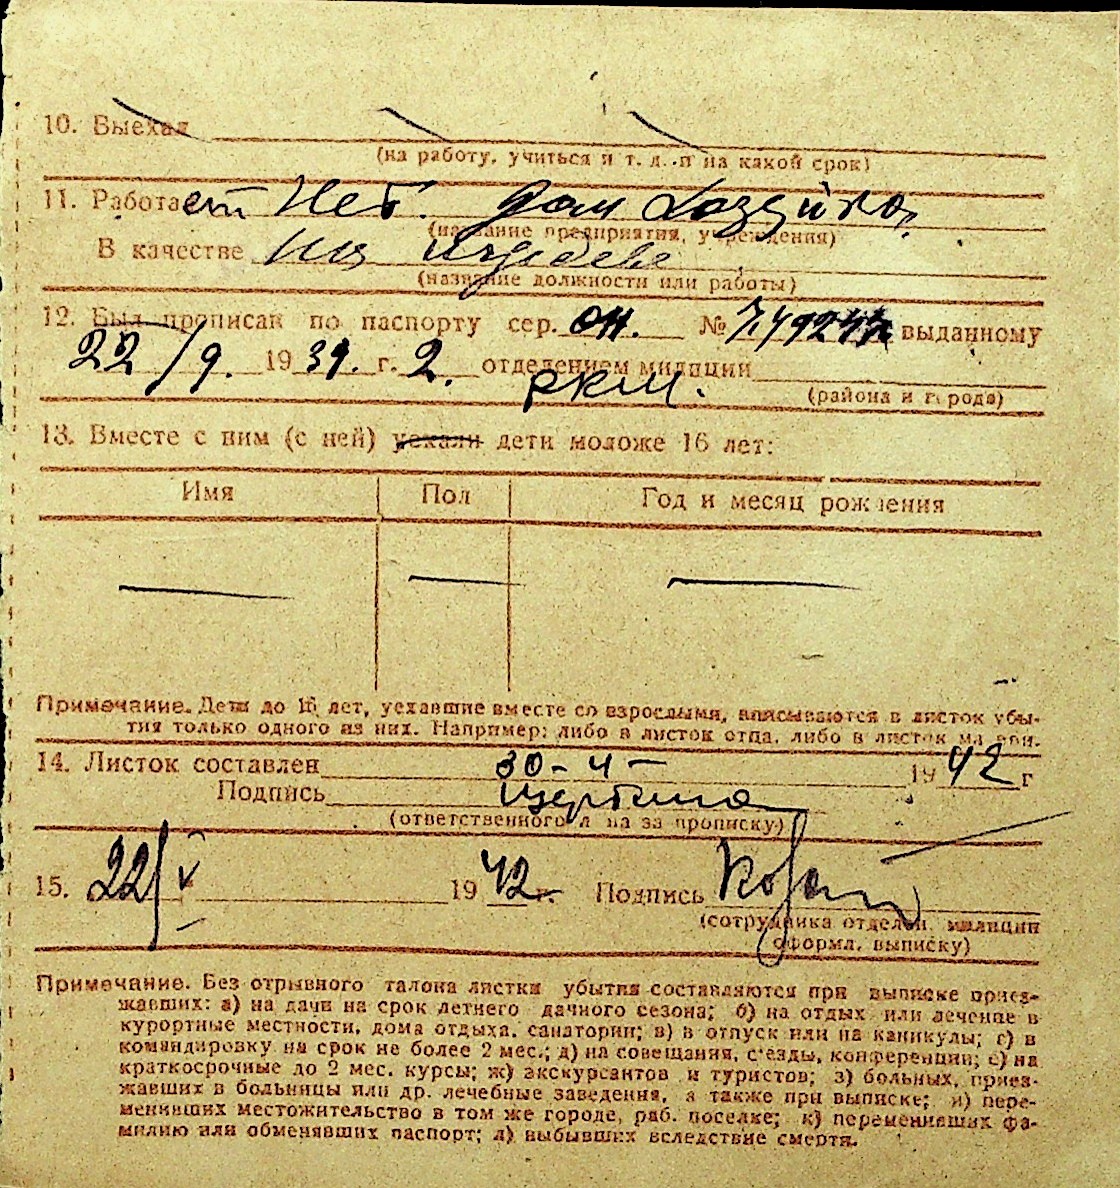 10. Выехал
(на работу, учиться и т. д. и на какой срок)
11. Работает Нет. Дом хозяйка.
(название предприятия, учреждения)
В качестве на иждеве
(название должности или работы)
12. Был прописан по паспорту сер. ОН. № выданному
22/9. 1939. г. 2. отделением милиции
РКМ.
(района и города)
13. Вместе с ним (с ней) уехали дети моложе 16 лет:
Имя Пол Год и месяц рождения
Примечание. Дети до 16 лет, уехавшие вместе со взрослыми, вписываются в листок убы-
тия только одного из них. Например: либо в листок отца, либо в листок матери.
14. Листок составлен 30-4- 1942 г
Подпись
(ответственного лица за прописку)
15. 22/V 1942 г. Подпись
(сотрудника отделен. милиции
оформл. выписку)
Примечание. Без отрывного талона листки убытия составляются при выписке приез-
жавших: а) на дачи на срок летнего дачного сезона; б) на отдых или лечение в
курортные местности, дома отдыха, санатории; в) в отпуск или на каникулы; г) в
командировку на срок не более 2 мес.; д) на совещания, съезды, конференции; е) на
краткосрочные до 2 мес. курсы; ж) экскурсантов и туристов; з) больных, приез-
жавших в больницы или др. лечебные заведения, а также при выписке; и) пере-
менивших местожительство в том же городе, раб. поселке; к) переменивших фа-
милию или обменявших паспорт; л) выбывших вследствие смерти.